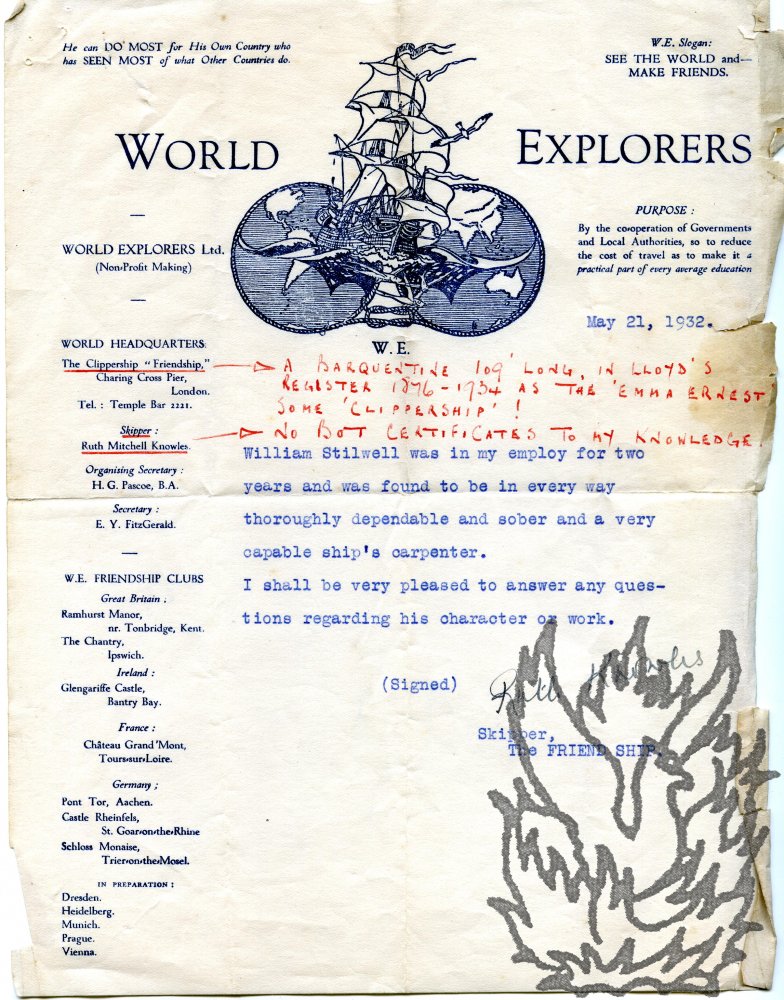 He can DO MOST for His Own Country who
has SEEN MOST of what Other Countries do.
W.E. Slogan:
SEE THE WORLD and—
MAKE FRIENDS.
WORLD EXPLORERS
WORLD EXPLORERS Ltd.
(Non-Profit Making)
PURPOSE :
By the co-operation of Governments
and Local Authorities, so to reduce
the cost of travel as to make it a
practical part of every average education
May 21, 1932.
W.E.
WORLD HEADQUARTERS
The Clippership "Friendship,"
Charing Cross Pier,
London.
Tel. : Temple Bar 2221.
Skipper :
Ruth Mitchell Knowles.
Organising Secretary :
H. G. Pascoe, B.A.
Secretary :
E. Y. FitzGerald.
W.E. FRIENDSHIP CLUBS
Great Britain :
Ramhurst Manor,
nr. Tonbridge, Kent.
The Chantry,
Ipswich.
Ireland :
Glengariffe Castle,
Bantry Bay.
France :
Château Grand'Mont,
Tours-sur-Loire.
Germany ;
Pont Tor, Aachen.
Castle Rheinfels,
St. Goar-on-the-Rhine
Schloss Monaise,
Trier-on-the-Mosel.
IN PREPARATION :
Dresden.
Heidelberg.
Munich.
Prague.
Vienna.
A BARQUENTINE 109' LONG, IN LLOYD'S
REGISTER 1876-1934 AS THE 'EMMA ERNEST'
SOME 'CLIPPERSHIP' !
NO BOT CERTIFICATES TO MY KNOWLEDGE.
William Stilwell was in my employ for two
years and was found to be in every way
thoroughly dependable and sober and a very
capable ship's carpenter.
I shall be very pleased to answer any ques-
tions regarding his character or work.
(Signed) Ruth Knowles
Skipper,
The FRIEND SHIP.